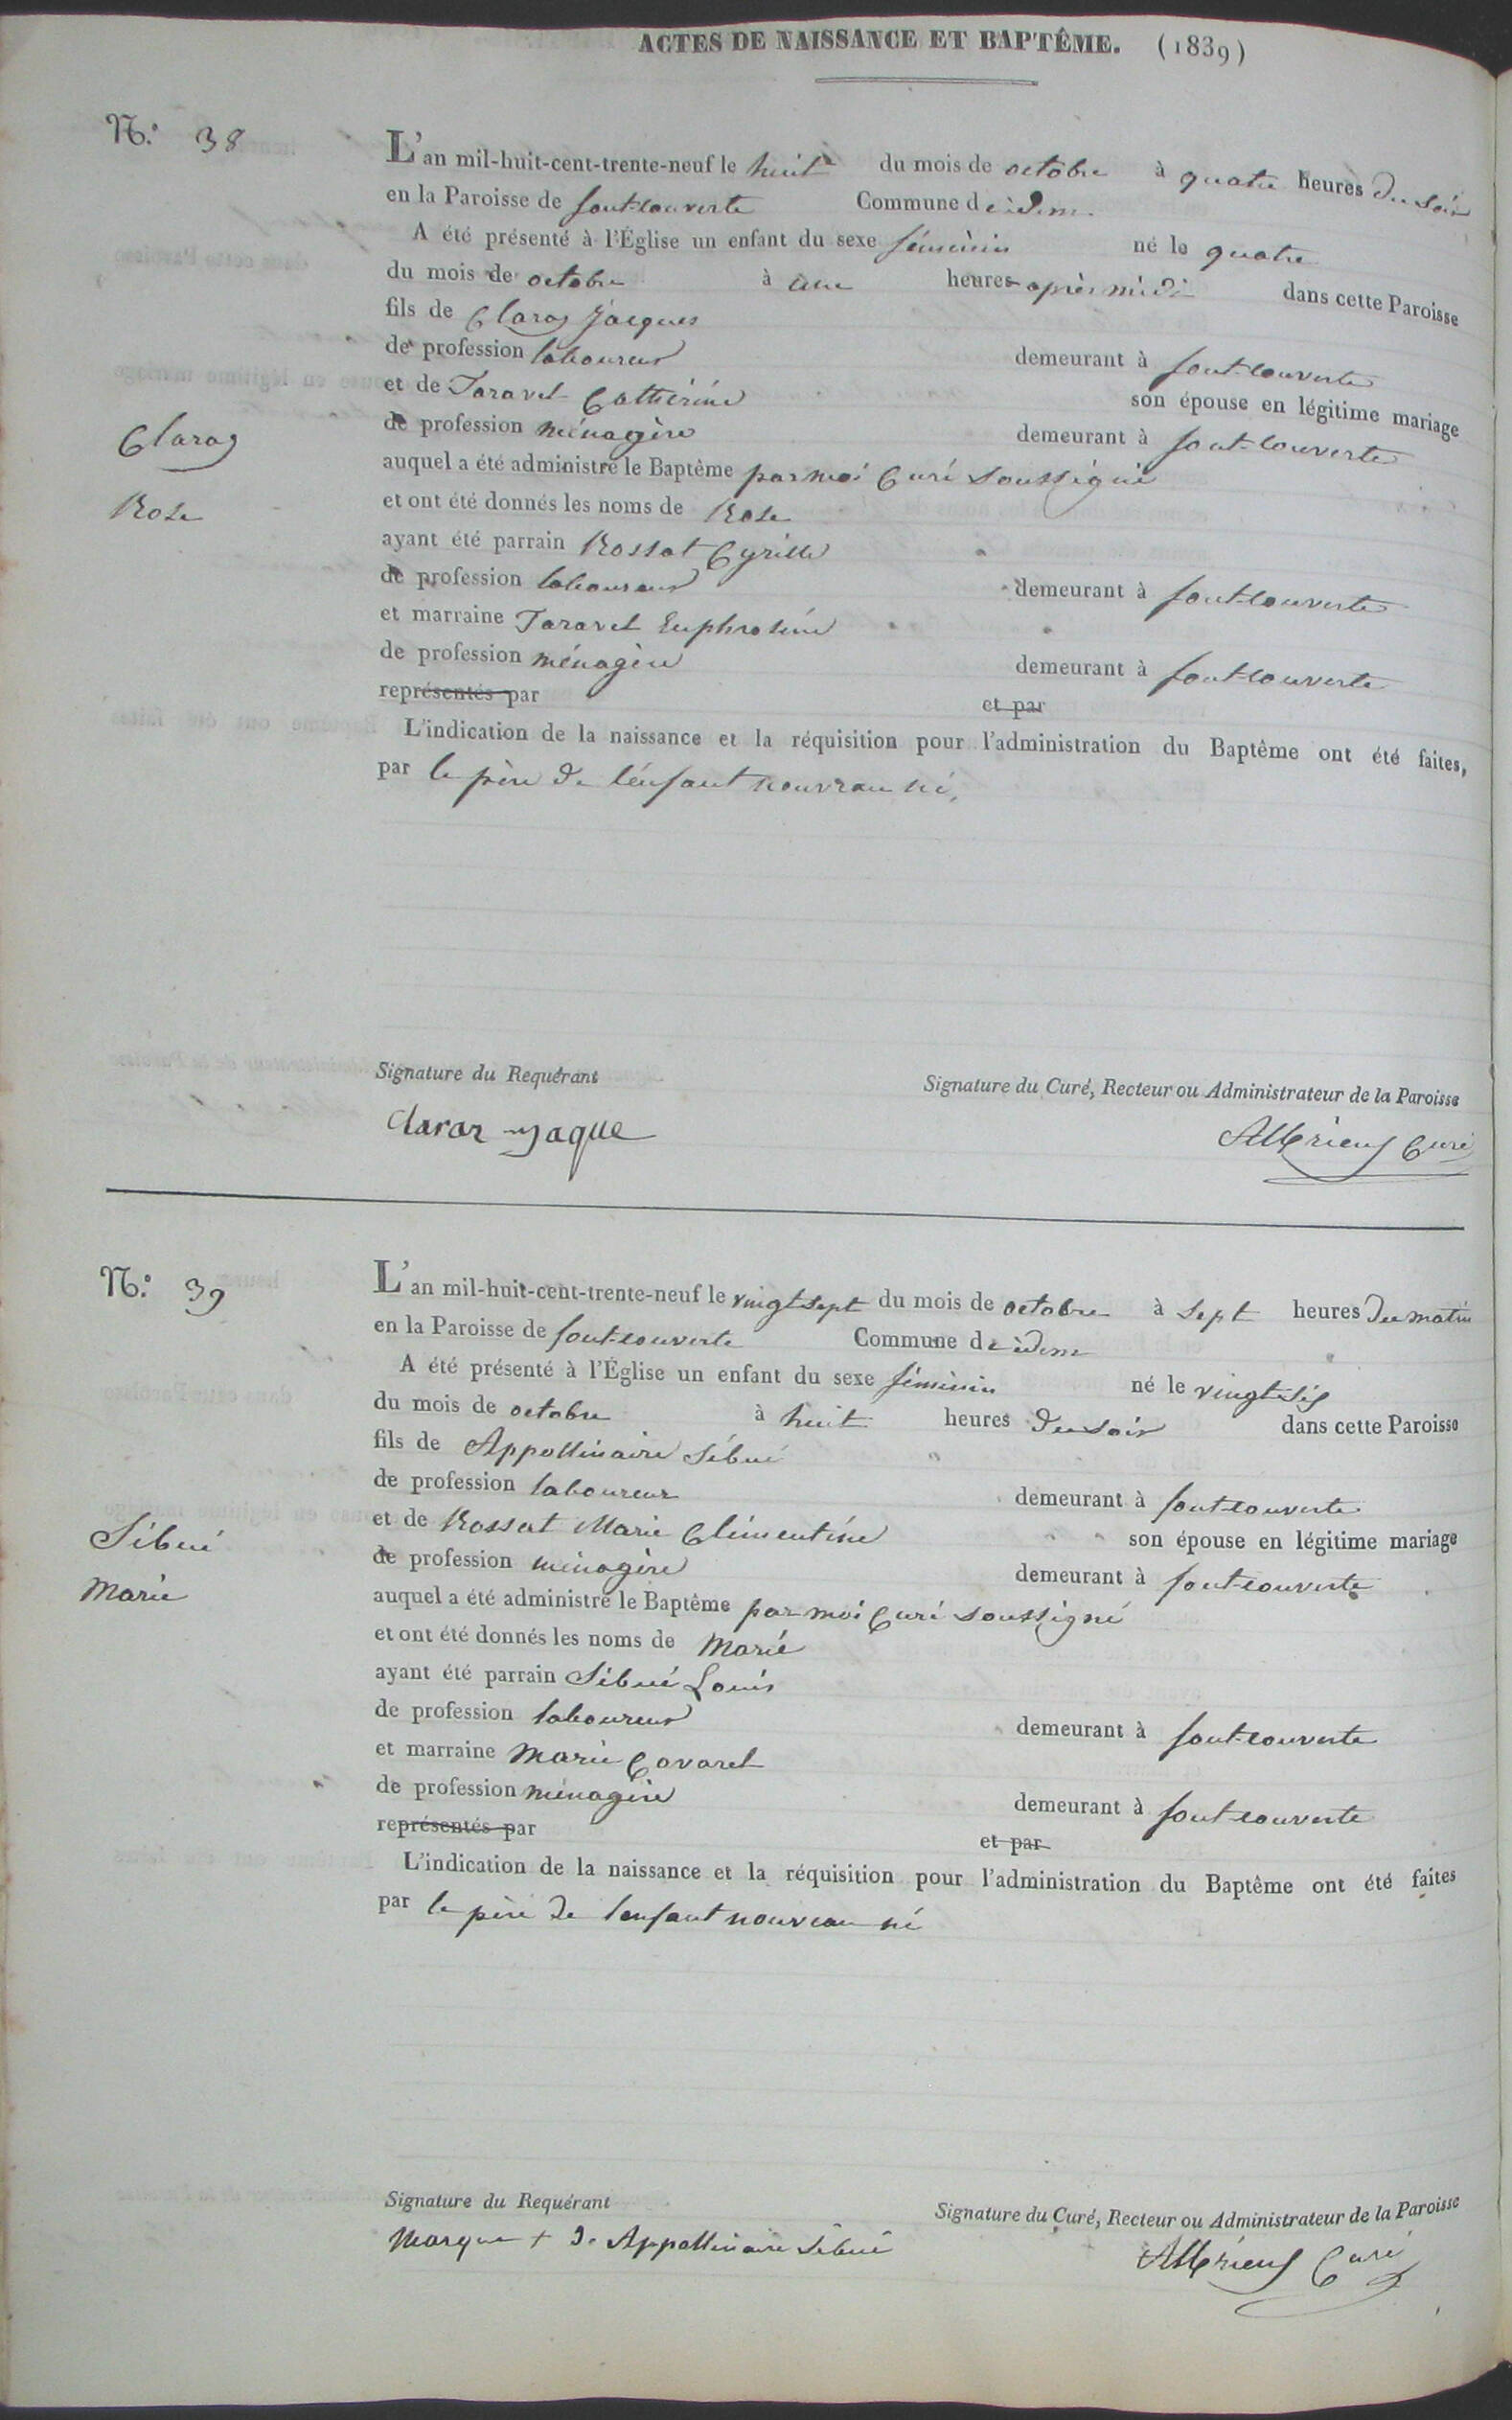 ACTES DE NAISSANCE ET BAPTÊME. (1839)
N.° 38
L'an mil-huit-cent-trente-neuf le huit du mois de octobre à quatre heures du soir
en la Paroisse de font-couverte Commune de idem.
A été présenté à l'Église un enfant du sexe féminin né le quatre
du mois de octobre à une heures après midi dans cette Paroisse
fils de Claraz Jacques
de profession laboureur demeurant à font-couverte
et de Taravel Cathérine son épouse en légitime mariage
Claraz
de profession ménagère demeurant à font-couverte
auquel a été administré le Baptême par moi Curé soussigné
Rose
et ont été donnés les noms de Rose
ayant été parrain Rossat Cyrille
de profession laboureur demeurant à font-couverte
et marraine Taravel Euphrosine
de profession ménagère demeurant à font-couverte
représentés par et par
L'indication de la naissance et la réquisition pour l'administration du Baptême ont été faites,
par le père de l'enfant nouveau né,
Signature du Requérant Signature du Curé, Recteur ou Administrateur de la Paroisse
Claraz Jaque Curé
N.° 39
L'an mil-huit-cent-trente-neuf le vingt sept du mois de octobre à sept heures du matin
en la Paroisse de font-couverte Commune de idem
A été présenté à l'Église un enfant du sexe féminin né le vingt-six
du mois de octobre à huit heures du soir dans cette Paroisse
fils de Appollinaire Sibué
de profession laboureur demeurant à font-couverte
et de Rossat Marie Clémentine son épouse en légitime mariage
Sibué
de profession ménagère demeurant à font-couverte
Marie
auquel a été administré le Baptême par moi Curé soussigné
et ont été donnés les noms de Marie
ayant été parrain Sibué Louis
de profession laboureur demeurant à font-couverte
et marraine Marie Covarel
de profession ménagère demeurant à font-couverte
représentés par et par
L'indication de la naissance et la réquisition pour l'administration du Baptême ont été faites
par le père de l'enfant nouveau né
Signature du Requérant Signature du Curé, Recteur ou Administrateur de la Paroisse
Marque + de Appollinaire Sibué Curé